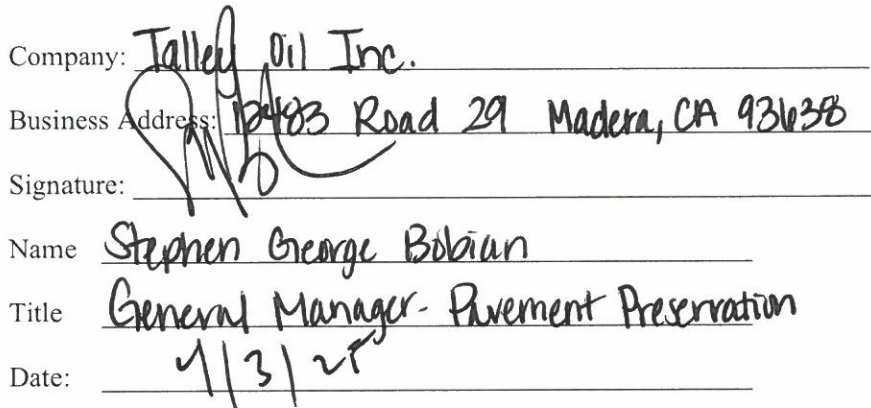 Company: Talley Oil Inc.
Business Address: 12483 Road 29 Madera, CA 93638
Signature:
Name Stephen George Bobian
Title General Manager - Pavement Preservation
Date: /3/25